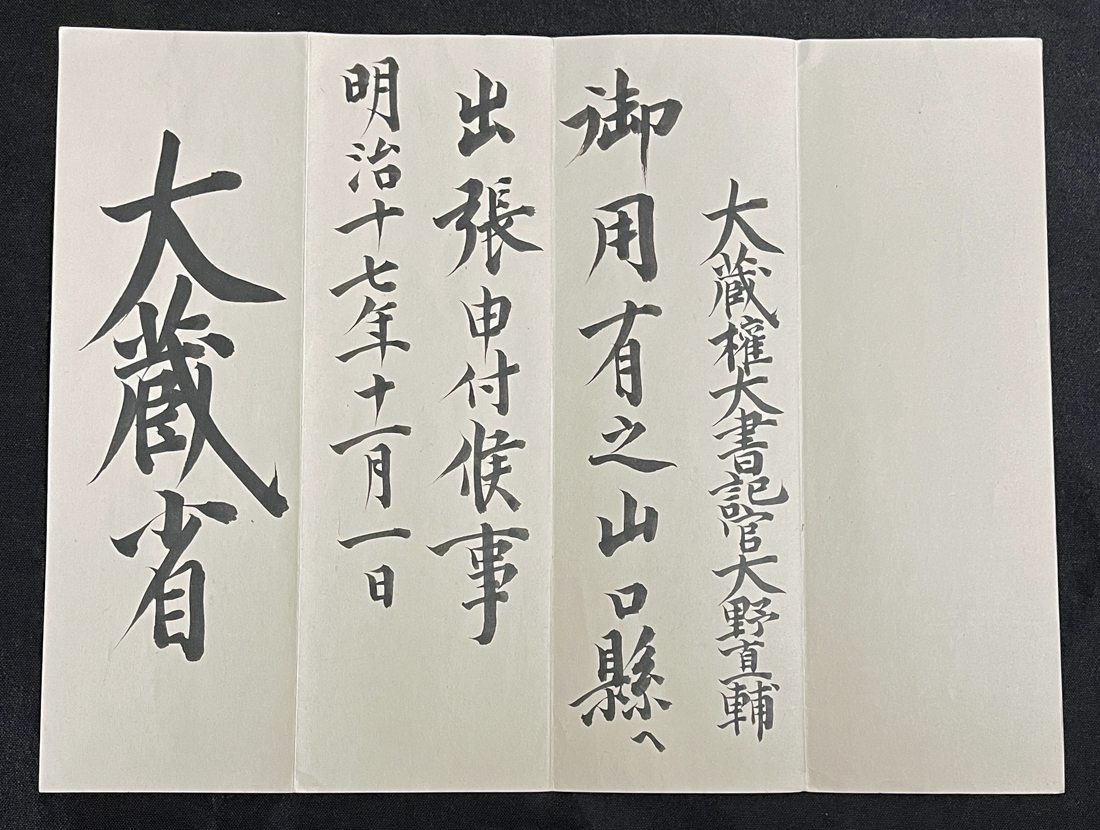 大蔵權大書記官大野直輔
御用有之山口縣へ
出張申付候事
明治十七年十一月一日
大蔵省